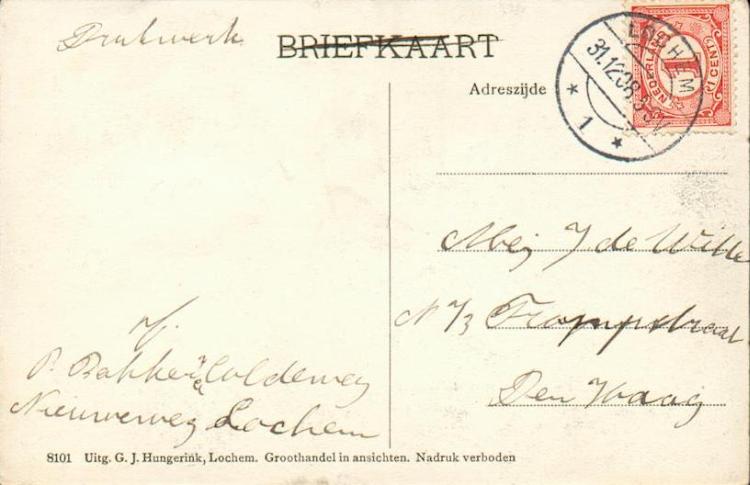 Drukwerk
BRIEFKAART
Adreszijde
NEDERLAND
1
1 CENT
LOCHEM
31.12.08.
1
Mej J. de Witte
Trompstraat
Den Haag
P. Bakker
Nieuweweg Lochem
8101 Uitg. G. J. Hungerink, Lochem. Groothandel in ansichten. Nadruk verboden